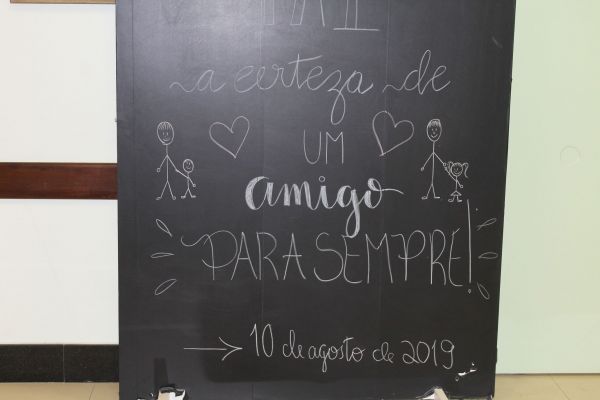 PAI
a certeza de
UM
amigo
PARA SEMPRE!
10 de agosto de 2019